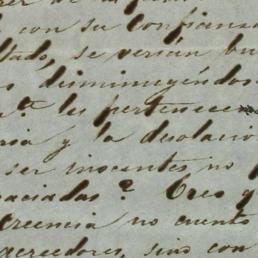 con su confianza
ltado, se verian bu
s disminuyéndos
a.ᵗᵉ les pertenece
ria y la desolacio
ser inocentes no p
aciadas? Creo q
creencia no cuento
acreedores, sino con